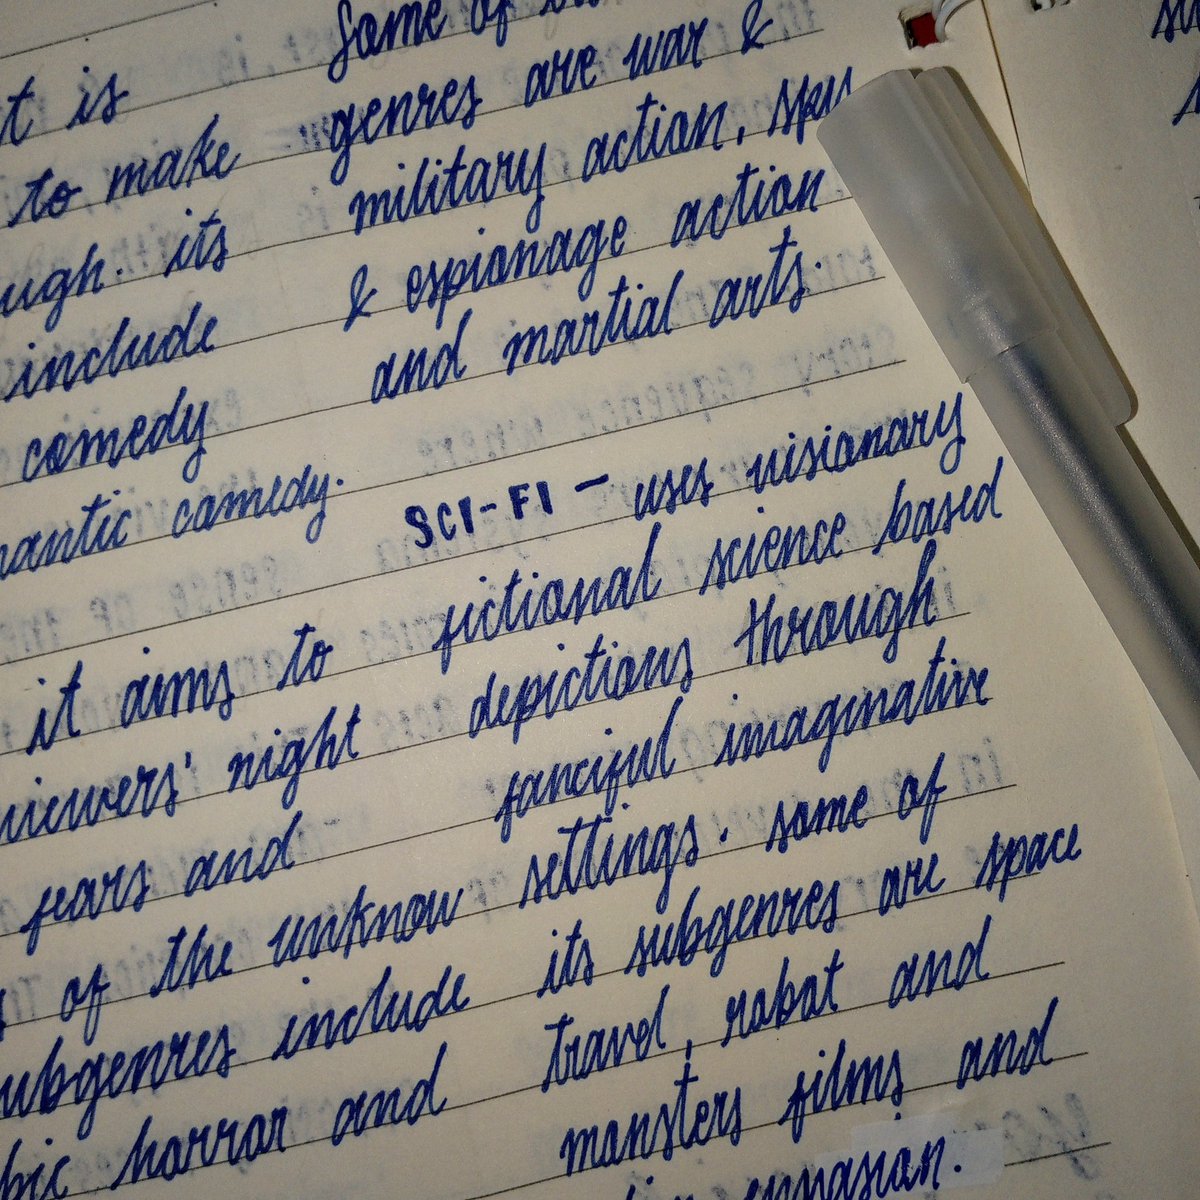 t is
to make
ugh. its
include
comedy
mantic comedy.
it aims to
viewers' night
fears and
of the unknow
subgenres include
bic horror and
Some of
genres are war &
military action, spy
& espionage action
and martial arts.
SCI-FI - uses visionary
fictional science based
depictions through
fanciful imaginative
settings. some of
its subgenres are space
travel, robot and
monsters films and
invasion.